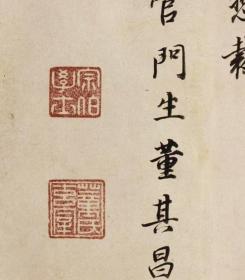 官門生董其昌
宗伯學士
董氏玄宰